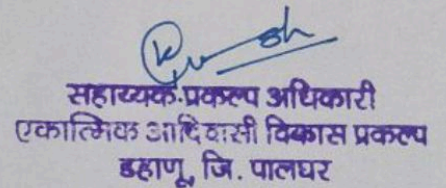 सहाय्यक प्रकल्प अधिकारी
एकात्मिक आदिवासी विकास प्रकल्प
डहाणू, जि. पालघर